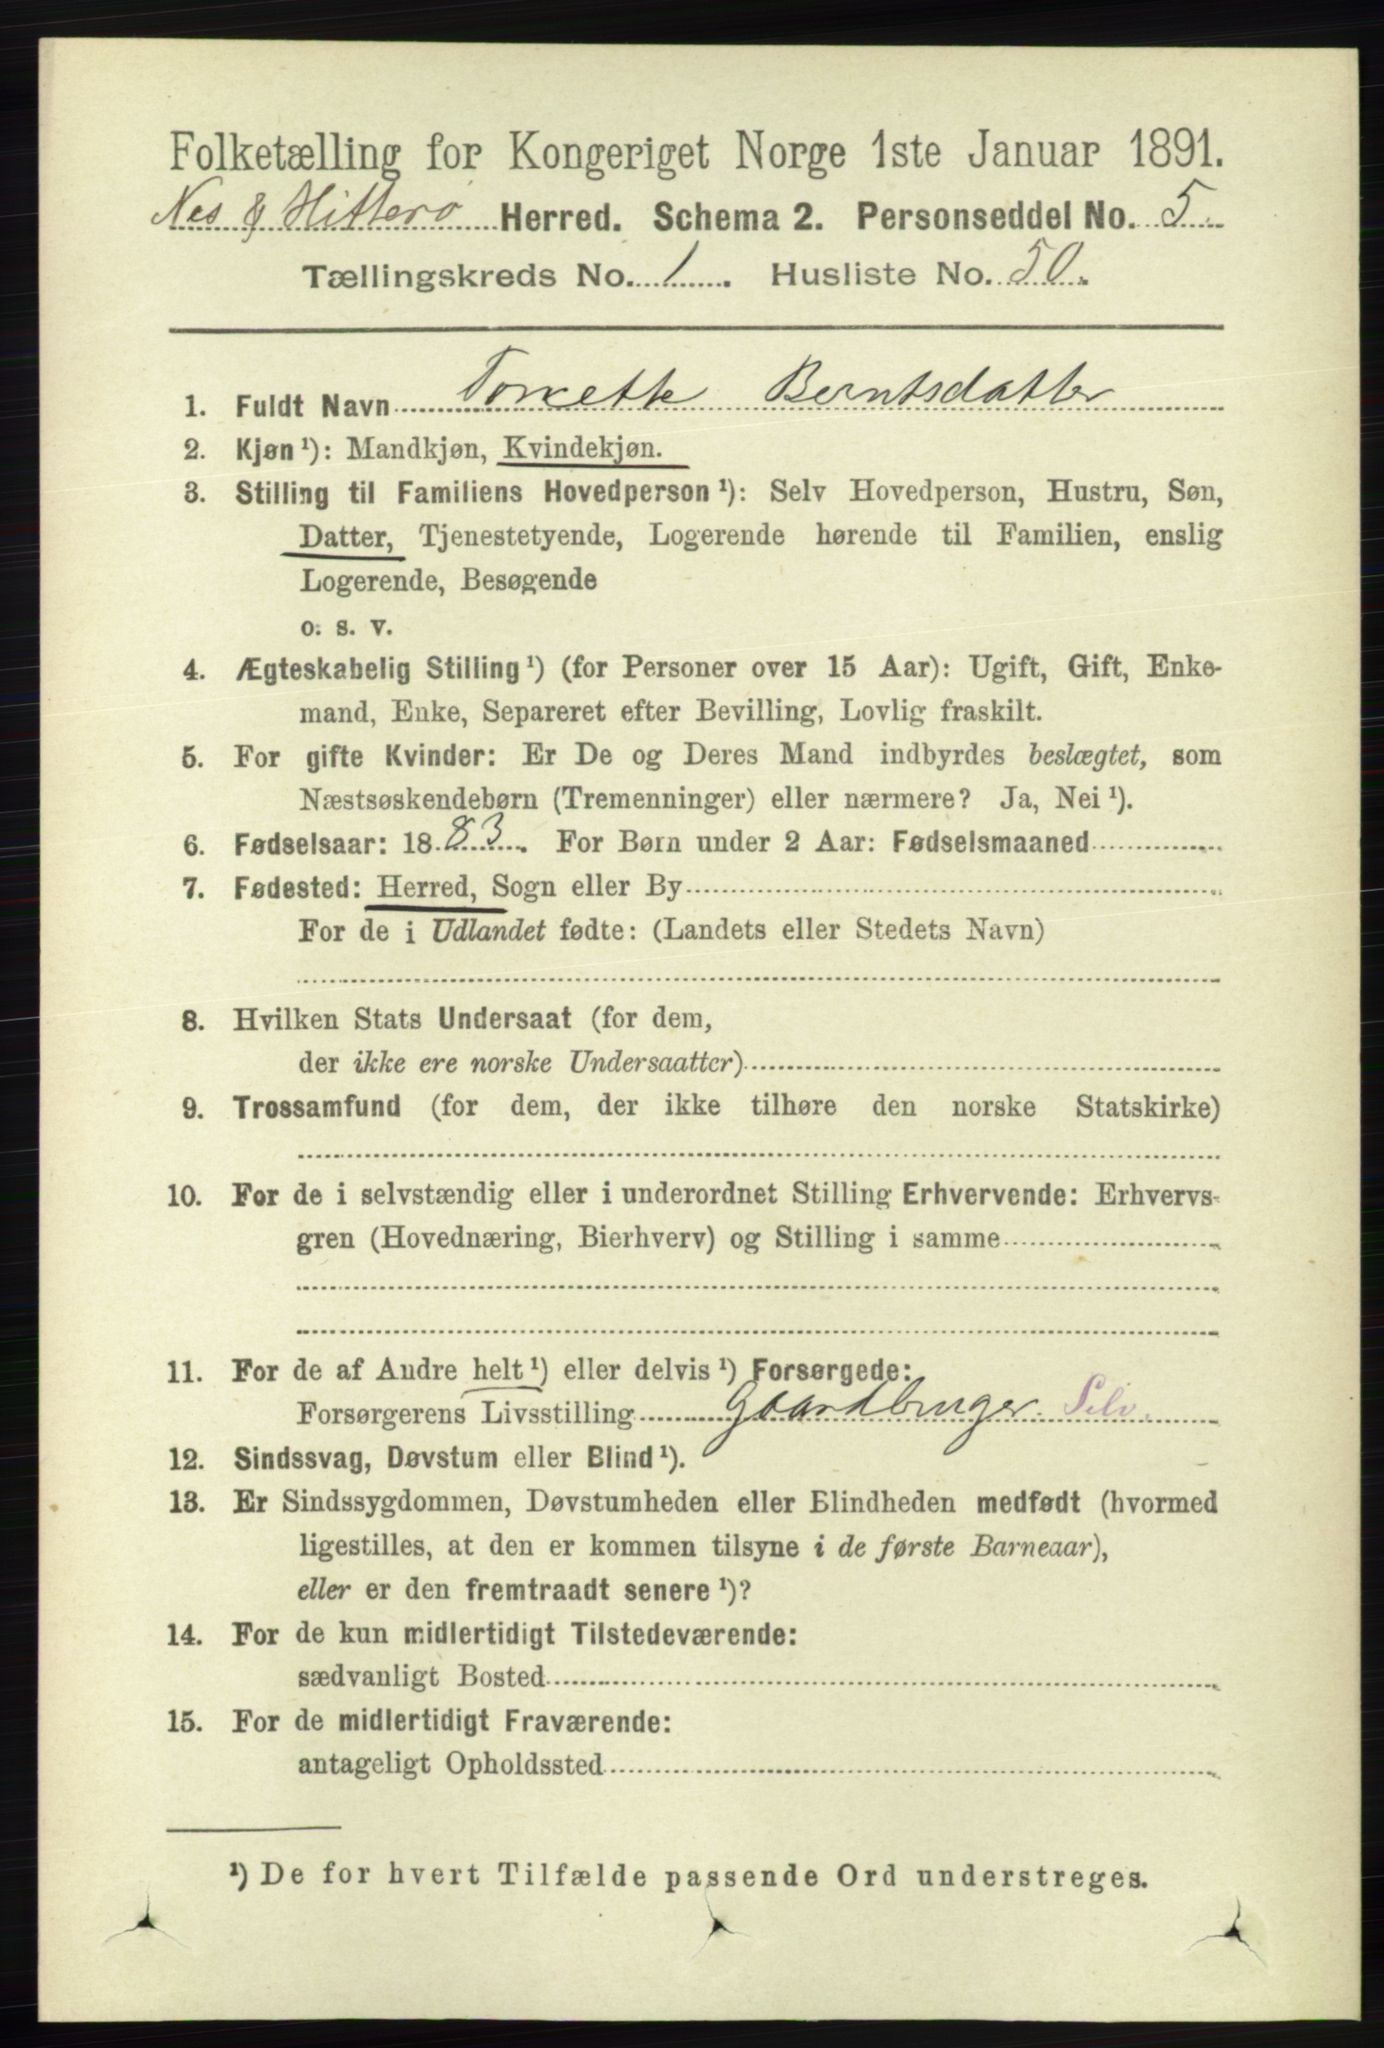 Folketælling for Kongeriget Norge 1ste Januar 1891.
Nes & Hitterø Herred. Schema 2. Personseddel No. 5
Tællingskreds No. 1. Husliste No. 50.
1. Fuldt Navn Torkette Berntsdatter
2. Kjøn ¹): Mandkjøn, Kvindekjøn.
3. Stilling til Familiens Hovedperson ¹): Selv Hovedperson, Hustru, Søn,
Datter, Tjenestetyende, Logerende hørende til Familien, enslig
Logerende, Besøgende
o. s. v.
4. Ægteskabelig Stilling ¹) (for Personer over 15 Aar): Ugift, Gift, Enke-
mand, Enke, Separeret efter Bevilling, Lovlig fraskilt.
5. For gifte Kvinder: Er De og Deres Mand indbyrdes beslægtet, som
Næstsøskendebørn (Tremenninger) eller nærmere? Ja, Nei ¹).
6. Fødselsaar: 1883. For Børn under 2 Aar: Fødselsmaaned
7. Fødested: Herred, Sogn eller By
For de i Udlandet fødte: (Landets eller Stedets Navn)
8. Hvilken Stats Undersaat (for dem,
der ikke ere norske Undersaatter)
9. Trossamfund (for dem, der ikke tilhøre den norske Statskirke)
10. For de i selvstændig eller i underordnet Stilling Erhvervende: Erhvervs-
gren (Hovednæring, Bierhverv) og Stilling i samme
11. For de af Andre helt ¹) eller delvis ¹) Forsørgede:
Forsørgerens Livsstilling Gaardbruger. Selv.
12. Sindssvag, Døvstum eller Blind ¹).
13. Er Sindssygdommen, Døvstumheden eller Blindheden medfødt (hvormed
ligestilles, at den er kommen tilsyne i de første Barneaar),
eller er den fremtraadt senere ¹)?
14. For de kun midlertidigt Tilstedeværende:
sædvanligt Bosted
15. For de midlertidigt Fraværende:
antageligt Opholdssted
¹) De for hvert Tilfælde passende Ord understreges.